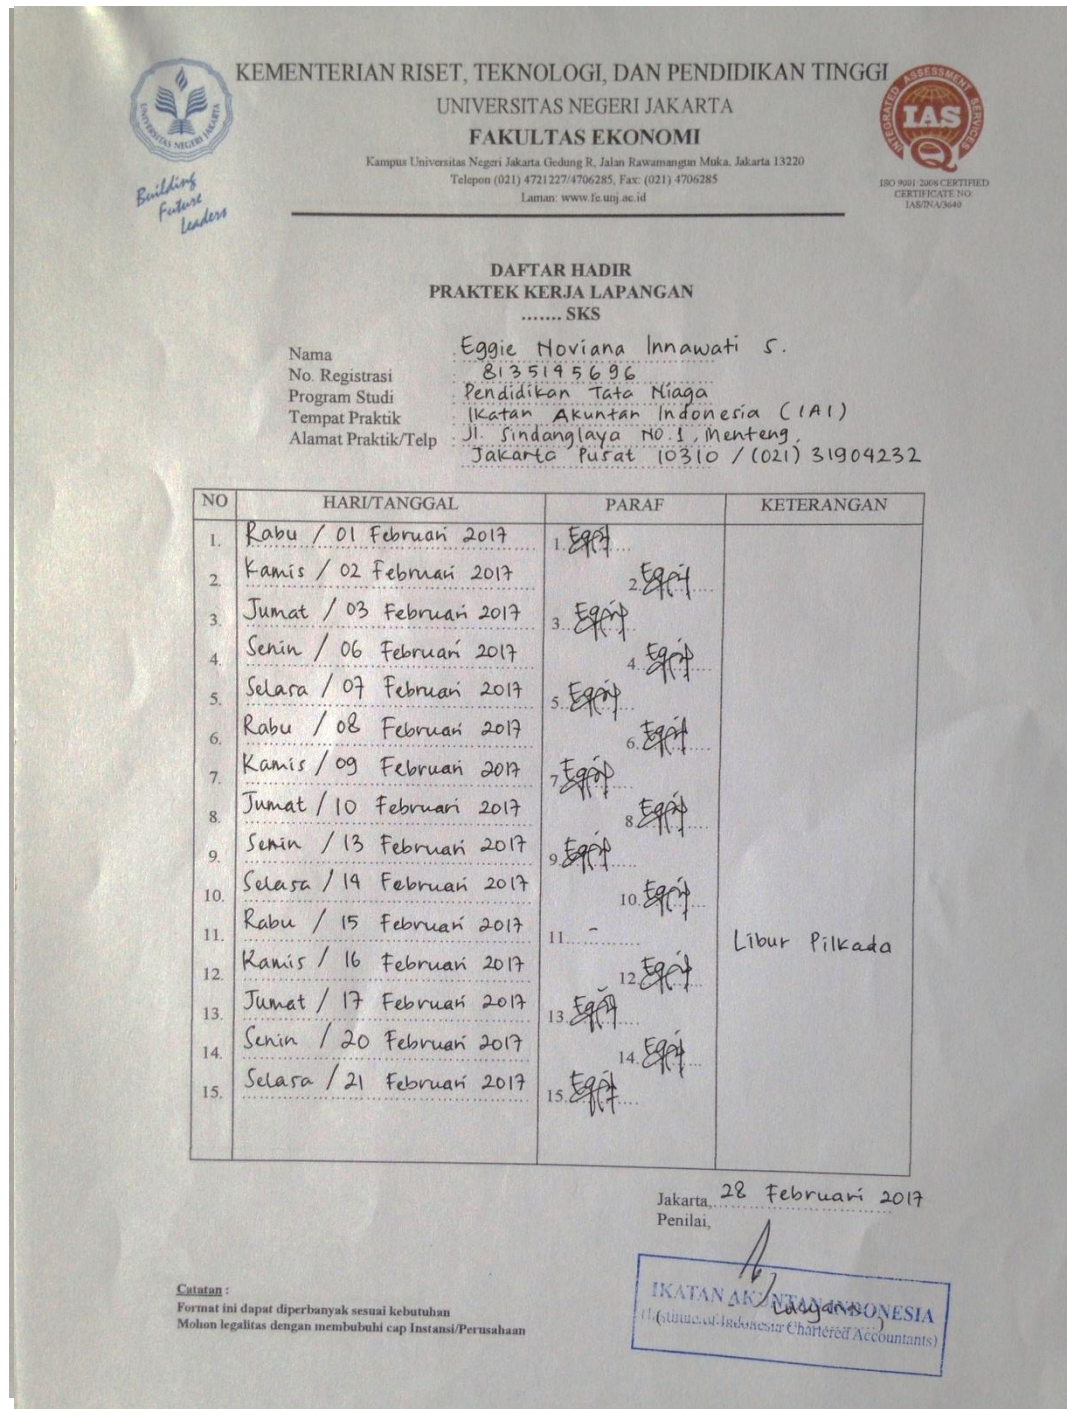 KEMENTERIAN RISET, TEKNOLOGI, DAN PENDIDIKAN TINGGI
UNIVERSITAS NEGERI JAKARTA
FAKULTAS EKONOMI
Kampus Universitas Negeri Jakarta Gedung R, Jalan Rawamangun Muka, Jakarta 13220
Telepon (021) 4721227/4706285, Fax: (021) 4706285
Laman: www.fe.unj.ac.id
UNIVERSITAS NEGERI JAKARTA
Building
Future
Leaders
INTEGRATED ASSESSMENT SERVICES
IAS
ISO 9001:2008 CERTIFIED
CERTIFICATE NO:
IAS/INA/3640
DAFTAR HADIR
PRAKTEK KERJA LAPANGAN
....... SKS
Nama : Eggie Noviana Innawati S.
No. Registrasi : 8135145696
Program Studi : Pendidikan Tata Niaga
Tempat Praktik : Ikatan Akuntan Indonesia (IAI)
Alamat Praktik/Telp : Jl. Sindanglaya No.1, Menteng,
Jakarta Pusat 10310 / (021) 31904232
NO HARI/TANGGAL PARAF KETERANGAN
1. Rabu / 01 Februari 2017 1.
2. Kamis / 02 Februari 2017 2.
3. Jumat / 03 Februari 2017 3.
4. Senin / 06 Februari 2017 4.
5. Selasa / 07 Februari 2017 5.
6. Rabu / 08 Februari 2017 6.
7. Kamis / 09 Februari 2017 7
8. Jumat / 10 Februari 2017 8.
9. Senin / 13 Februari 2017 9.
10. Selasa / 14 Februari 2017 10.
11. Rabu / 15 Februari 2017 11. - Libur Pilkada
12. Kamis / 16 Februari 2017 12
13. Jumat / 17 Februari 2017 13.
14. Senin / 20 Februari 2017 14.
15. Selasa / 21 Februari 2017 15.
Jakarta, 28 Februari 2017
Penilai,
IKATAN AKUNTAN INDONESIA
(Institute of Indonesia Chartered Accountants)
Catatan :
Format ini dapat diperbanyak sesuai kebutuhan
Mohon legalitas dengan membubuhi cap Instansi/Perusahaan